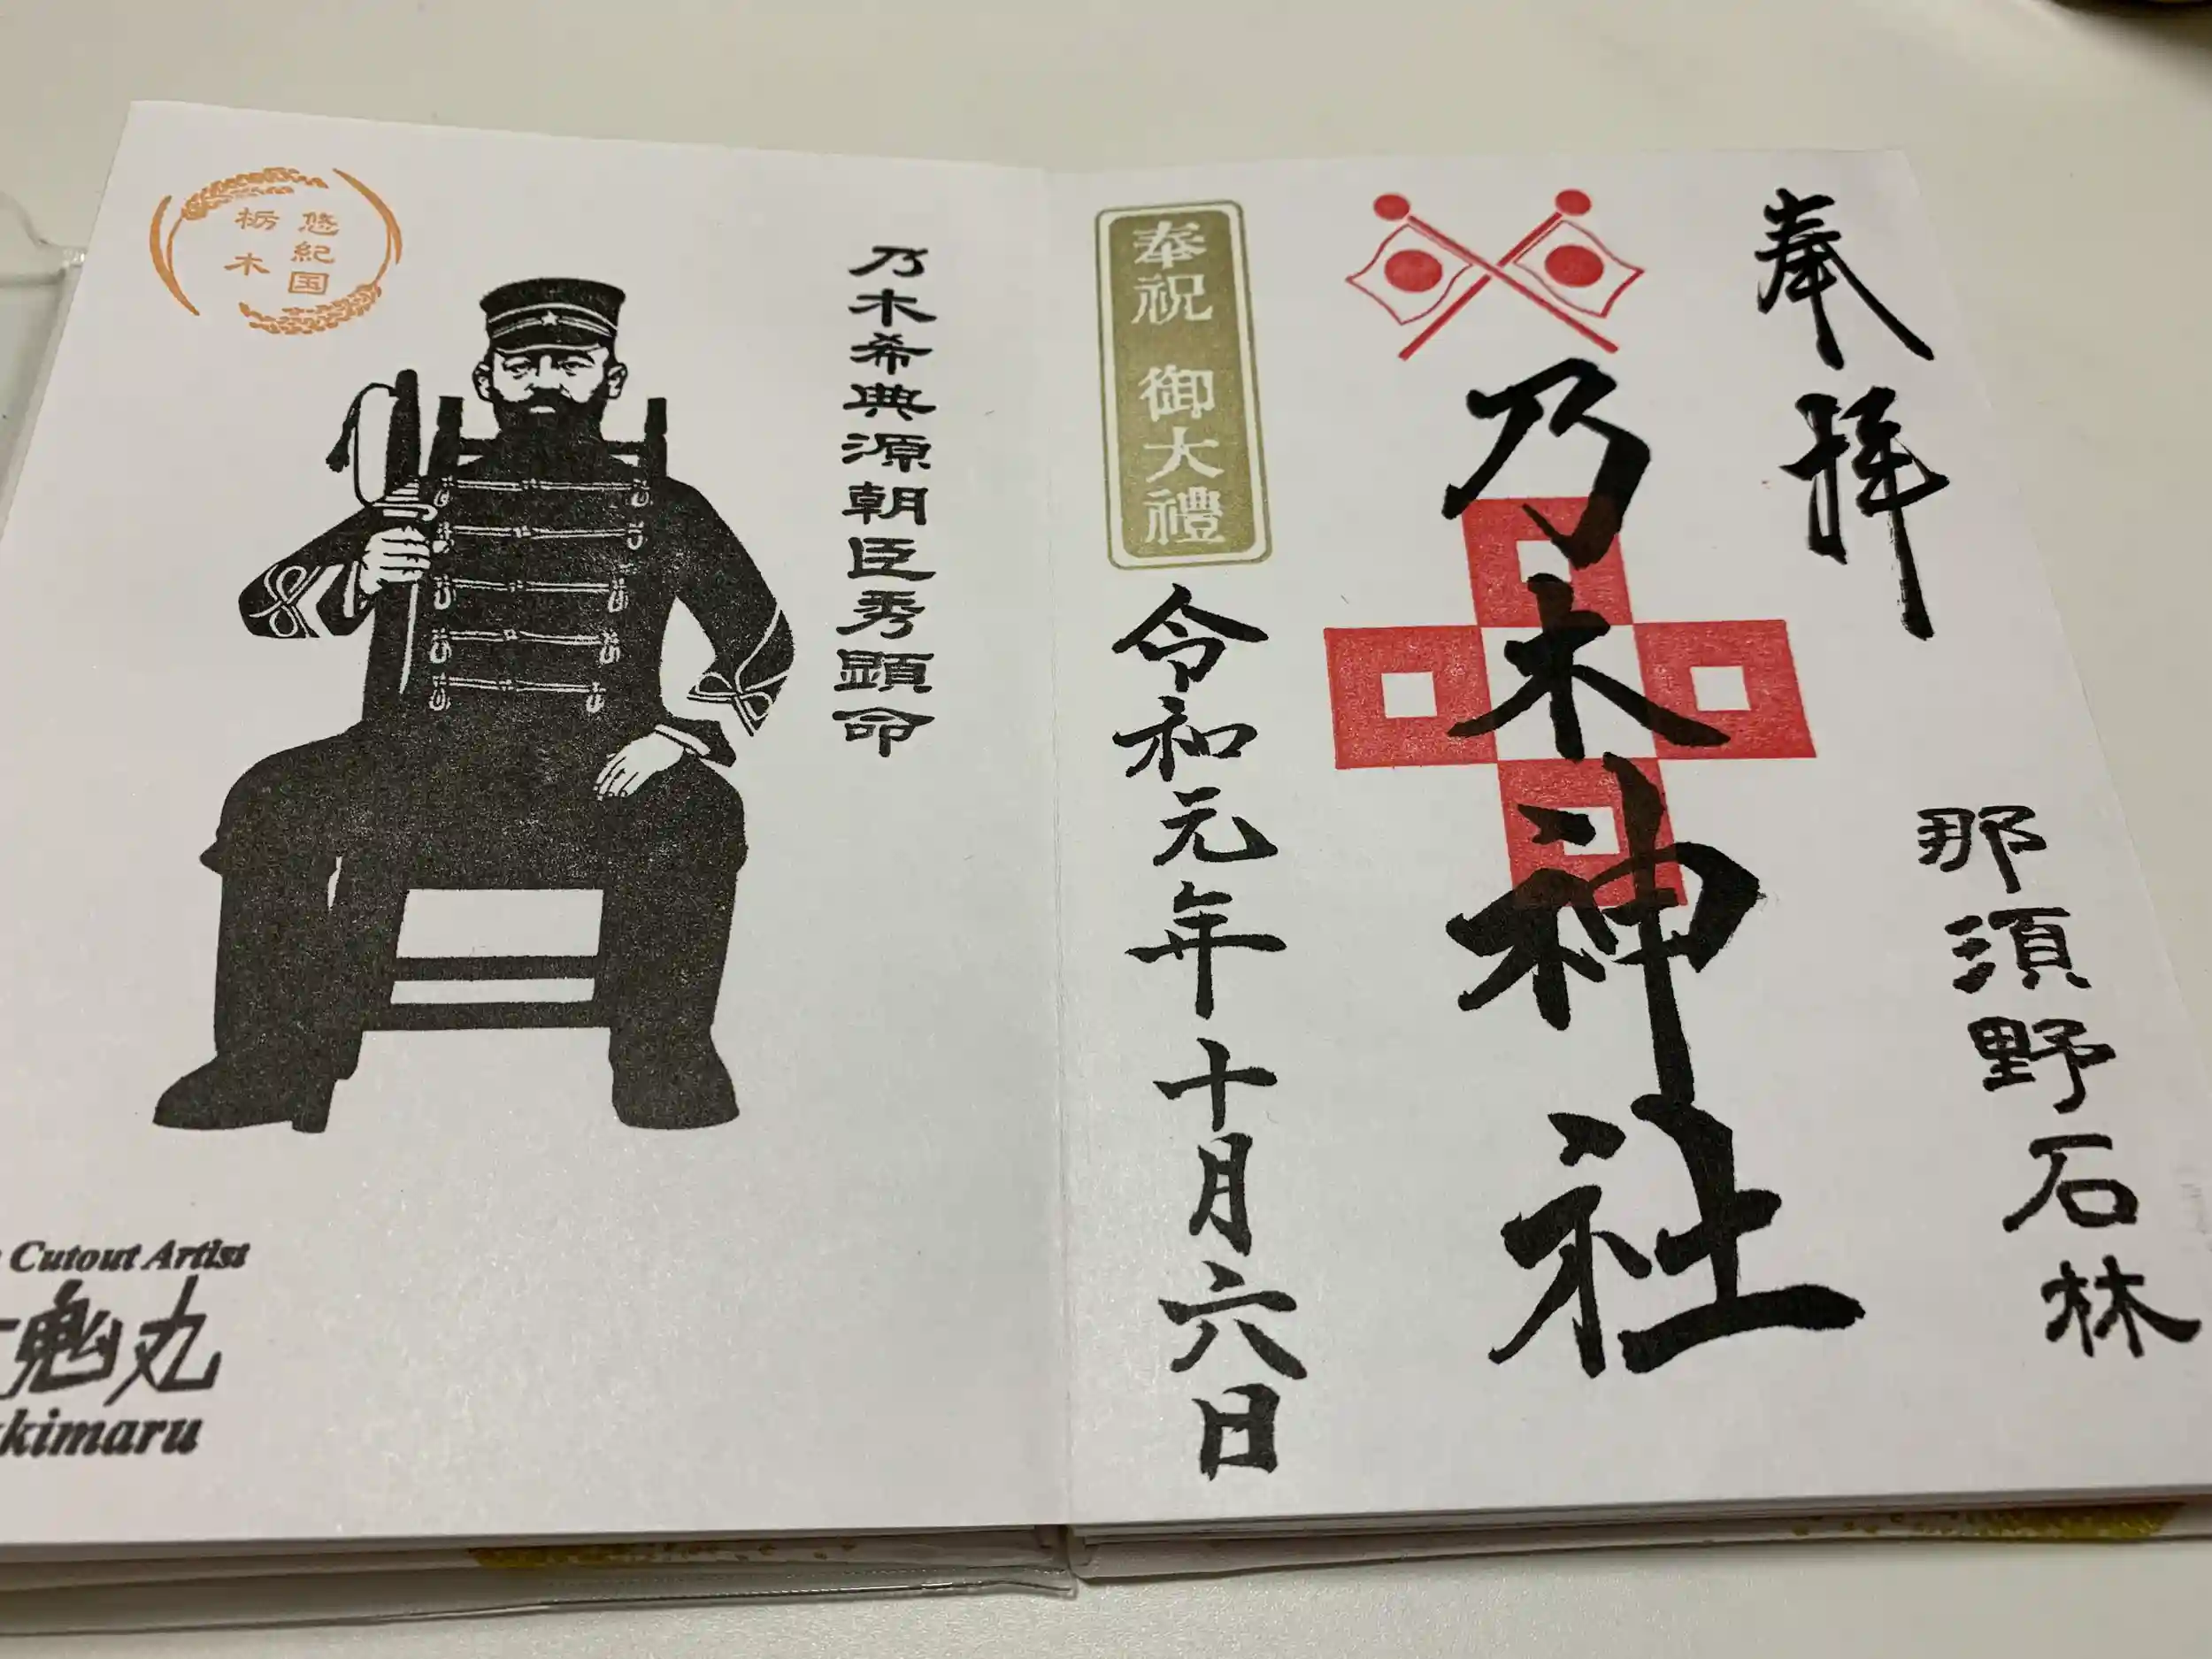 奉拝
那須野石林
乃木神社
奉祝 御大禮
令和元年十月六日
乃木希典源朝臣秀顕命
悠紀国
栃木
Cutout Artist
魁丸
kimaru